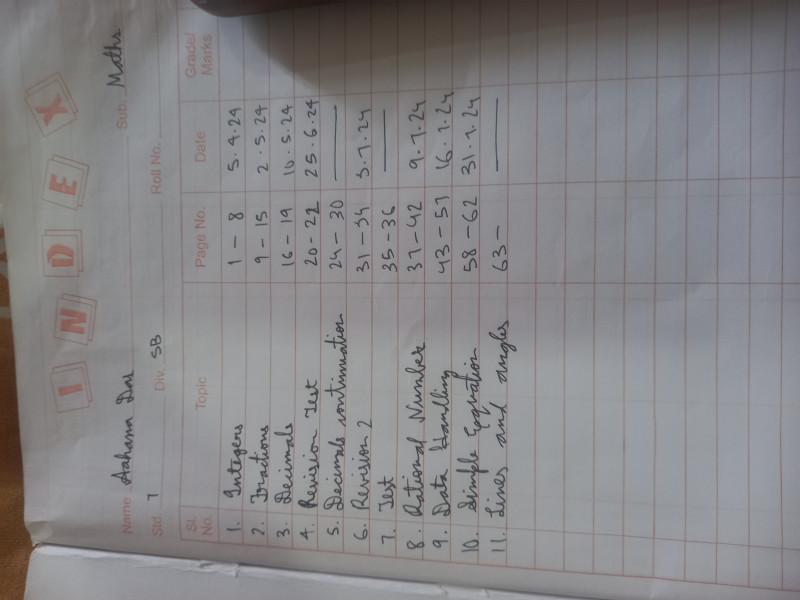 INDEX
Name Aahana Das Sub. Maths
Std. 7 Div. SB Roll No.
Sl. No. Topic Page No. Date Grade/ Marks
1. Integers 1 - 8 5.4.24
2. Fractions 9 - 15 2.5.24
3. Decimals 16 - 19 10.5.24
4. Revision Test 20 - 22 25.6.24
5. Decimals continuation 24 - 30 ——
6. Revision 2 31 - 34 3.7.24
7. Test 35 - 36 ——
8. Rational Number 37 - 42 9.7.24
9. Data Handling 43 - 57 16.7.24
10. Simple Equation 58 - 62 31.7.24
11. Lines and angles 63 - ——